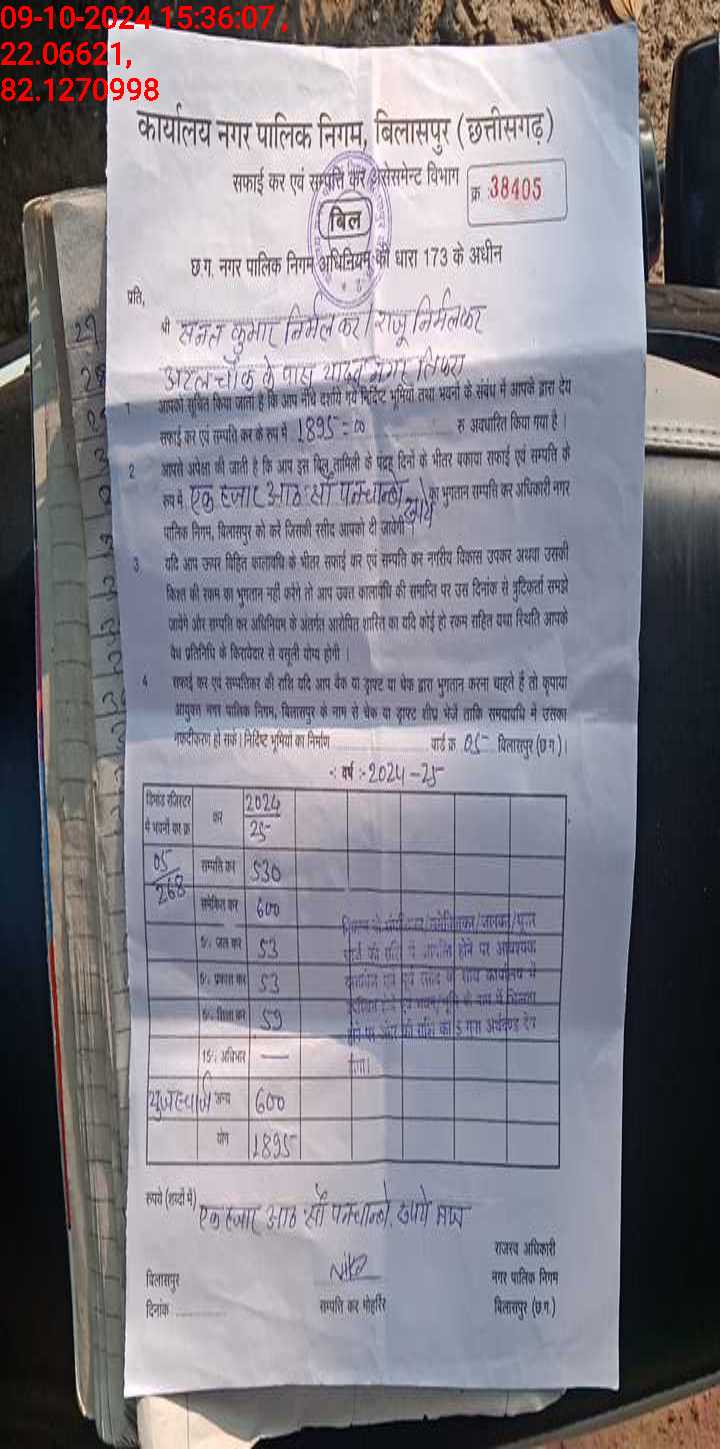 09-10-2024 15:36:07,
22.06621,
82.1270998
कार्यालय नगर पालिक निगम, बिलासपुर (छत्तीसगढ़)
सफाई कर एवं सम्पत्ति कर असेसमेन्ट विभाग
क्र. 38405
बिल
छ.ग. नगर पालिक निगम अधिनियम की धारा 173 के अधीन
प्रति,
श्री सनत कुमार निर्मलकर / राजू निर्मलकर
अटल चौक के पास यादव नगर तिफरा
1 आपको सूचित किया जाता है कि आप नीचे दर्शाये गये निर्दिष्ट भूमियों तथा भवनों के संबंध में आपके द्वारा देय
सफाई कर एवं सम्पति कर के रूप में 1895=00 रु अवधारित किया गया है।
2 आपसे अपेक्षा की जाती है कि आप इस बिल तामिली के पंद्रह दिनों के भीतर बकाया सफाई एवं सम्पति के
रूप में एक हजार आठ सौ पन्चान्बे रूपये का भुगतान सम्पति कर अधिकारी नगर
पालिक निगम, बिलासपुर को करे जिसकी रसीद आपको दी जायेगी।
3 यदि आप ऊपर विहित कालावधि के भीतर सफाई कर एवं सम्पति कर नगरीय विकास उपकर अथवा उसकी
किश्त की रकम का भुगतान नही करेंगे तो आप उक्त कालावधि की समाप्ति पर उस दिनांक से त्रुटिकर्ता समझे
जावेंगे और सम्पति कर अधिनियम के अंतर्गत आरोपित शास्ति का यदि कोई हो रकम सहित यथा स्थिति आपके
वैध प्रतिनिधि के किरायेदार से वसूली योग्य होगी।
4 सफाई कर एवं सम्पत्तिकर की राशि यदि आप बैंक या ड्राफ्ट या चेक द्वारा भुगतान करना चाहते हैं तो कृपया
आयुक्त नगर पालिक निगम, बिलासपुर के नाम से चेक या ड्राफ्ट शीघ्र भेजें ताकि समयावधि में उसका
नकदीकरण हो सके। निर्दिष्ट भूमियों का निर्माण वार्ड क्र. 05 बिलासपुर (छ.ग.)।
-: वर्ष :- 2024-25
डिमांड रजिस्टर
में भवनों का क्र कर 2024/25
05/268 सम्पति कर 530
समेकित कर 600
5% जल कर 53
5% प्रकाश कर 53
5% शिक्षा कर 59
15% अधिभार —
यूजरचार्ज अन्य 600
योग 1895
रूपये (शब्दों में) एक हजार आठ सौ पन्चान्बे रूपये मात्र
राजस्व अधिकारी
बिलासपुर नगर पालिक निगम
दिनांक सम्पति कर मोहर्रिर बिलासपुर (छ.ग.)